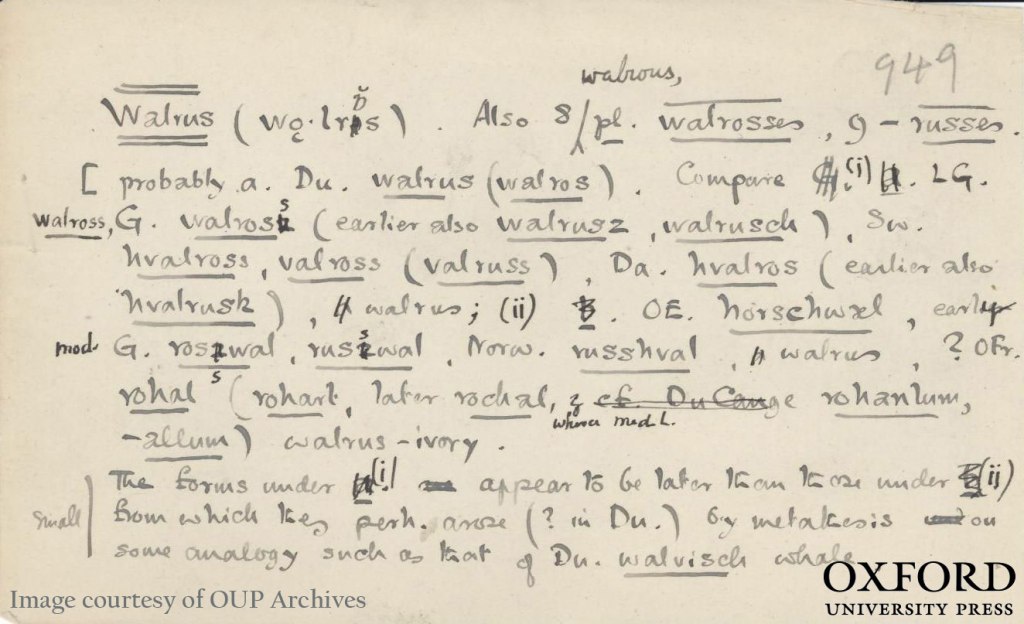 walrous,
949
Walrus (wǫ·lrɒ̆s). Also 8 / pl. walrosses, 9 -russes.
[probably a. Du. walrus (walros). Compare (i) LG.
walross, G. walross (earlier also walrusz, walrusch), Sw.
hvalross, valross (valruss), Da. hvalros (earlier also
hvalrusk), walrus; (ii) OE. horschwæl, early
mod. G. rosswal, russwal, Norw. russhval, walrus, ? OFr.
rohal (rohart, later rochal, cf. Du Cange rohanlum,
whence med. L.
-allum) walrus-ivory.
The forms under (i) appear to be later than those under (ii)
small from which they perh. arose (? in Du.) by metathesis on
some analogy such as that of Du. walvisch whale
Image courtesy of OUP Archives
OXFORD
UNIVERSITY PRESS